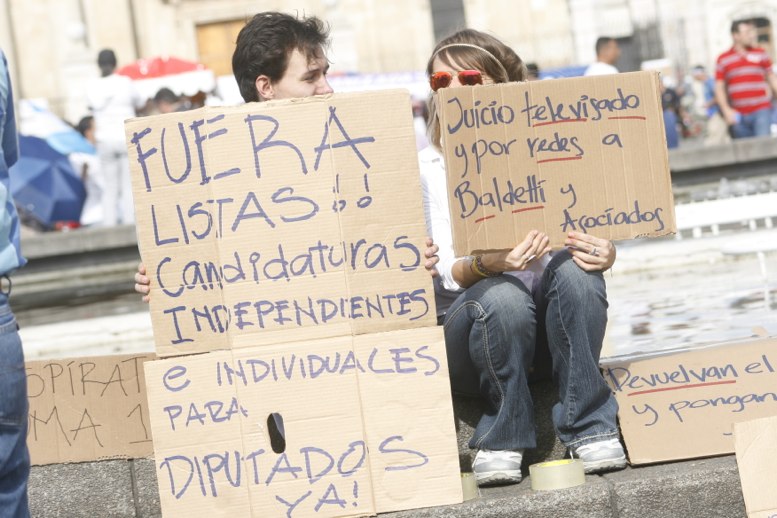 FUERA
LISTAS!!
Candidaturas
INDEPENDIENTES
e INDIVIDUALES
PARA
DIPUTADOS
YA!
Juicio televisado
y por redes a
Baldetti y
Asociados
Devuelvan el
y pongan